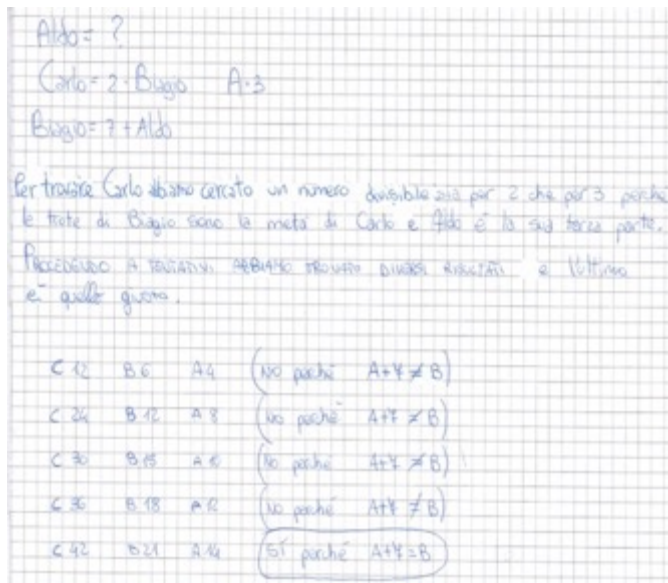 Aldo = ?
Carlo = 2 · Biagio A·3
Biagio = 7 + Aldo
Per trovare Carlo abbiamo cercato un numero divisibile sia per 2 che per 3 perché
le trote di Biagio sono la metà di Carlo e Aldo è la sua terza parte.
PROCEDENDO A TENTATIVI ABBIAMO TROVATO DIVERSI RISULTATI e l'ultimo
è quello giusto.
C 12 B 6 A 4 (NO perché A+7 ≠ B)
C 24 B 12 A 8 (No perché A+7 ≠ B)
C 30 B 15 A 10 (No perché A+7 ≠ B)
C 36 B 18 A 12 (No perché A+7 ≠ B)
C 42 B 21 A 14 (SÍ perché A+7 = B)